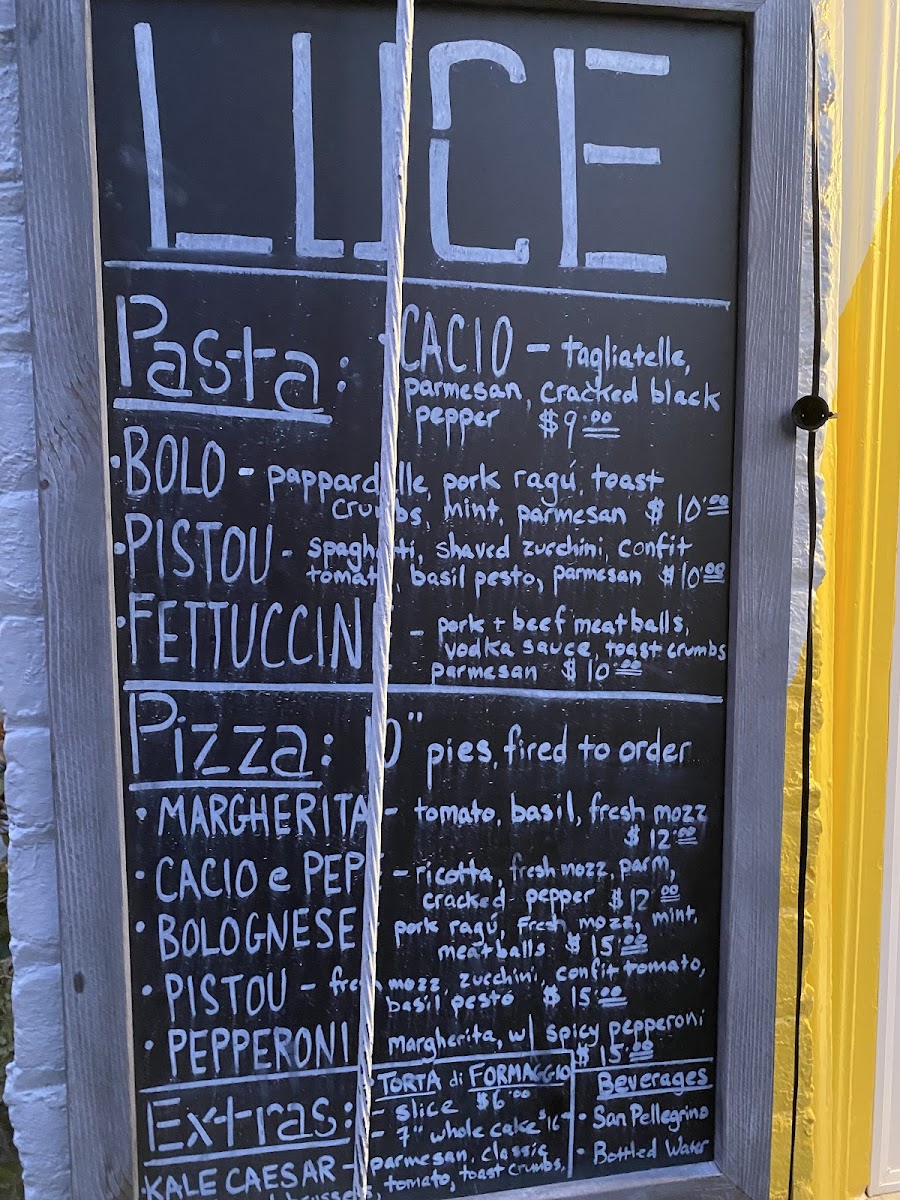 LUCE
Pasta: CACIO - tagliatelle,
parmesan, cracked black
pepper $9.00
• BOLO - pappardelle, pork ragú, toast
crumbs, mint, parmesan $10.00
• PISTOU - spaghetti, shaved zucchini, confit
tomato, basil pesto, parmesan $10.00
• FETTUCCIN - pork + beef meatballs,
vodka sauce, toast crumbs
parmesan $10.00
Pizza: 10" pies, fired to order
• MARGHERITA - tomato, basil, fresh mozz
$12.00
• CACIO e PEPE - ricotta, fresh mozz, parm,
cracked pepper $12.00
• BOLOGNESE pork ragú, fresh mozz, mint,
meatballs $15.00
• PISTOU - fresh mozz, zucchini, confit tomato,
basil pesto $15.00
• PEPPERONI margherita, w/ spicy pepperoni
$15.00
Extras:
TORTA di FORMAGGIO
- slice $6.00
- 7" whole cake $16
Beverages
• San Pellegrino
• Bottled Water
• KALE CAESAR - parmesan, classic
tomato, toast crumbs,